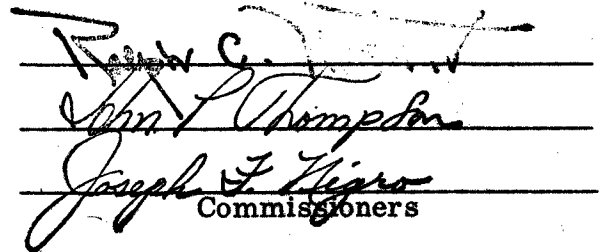 C.
John P Thompson
Joseph F. Nigro
Commissioners